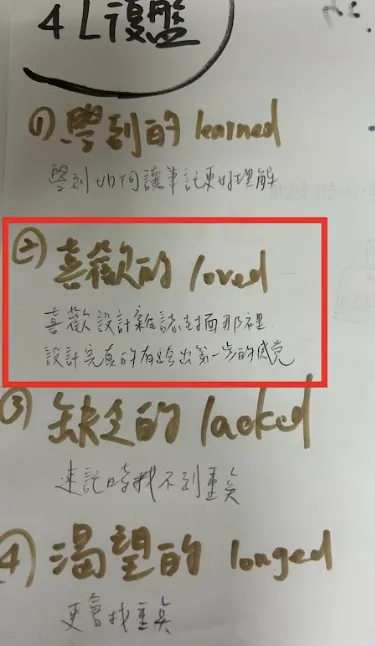 4L復盤
① 學到的 learned
學到如何讓筆記更好理解
② 喜歡的 loved
喜歡設計雜誌封面那裡
設計完真的有跨出第一步的感覚
③ 缺乏的 lacked
速記時找不到重矣
④ 渴望的 longed
更會找重矣